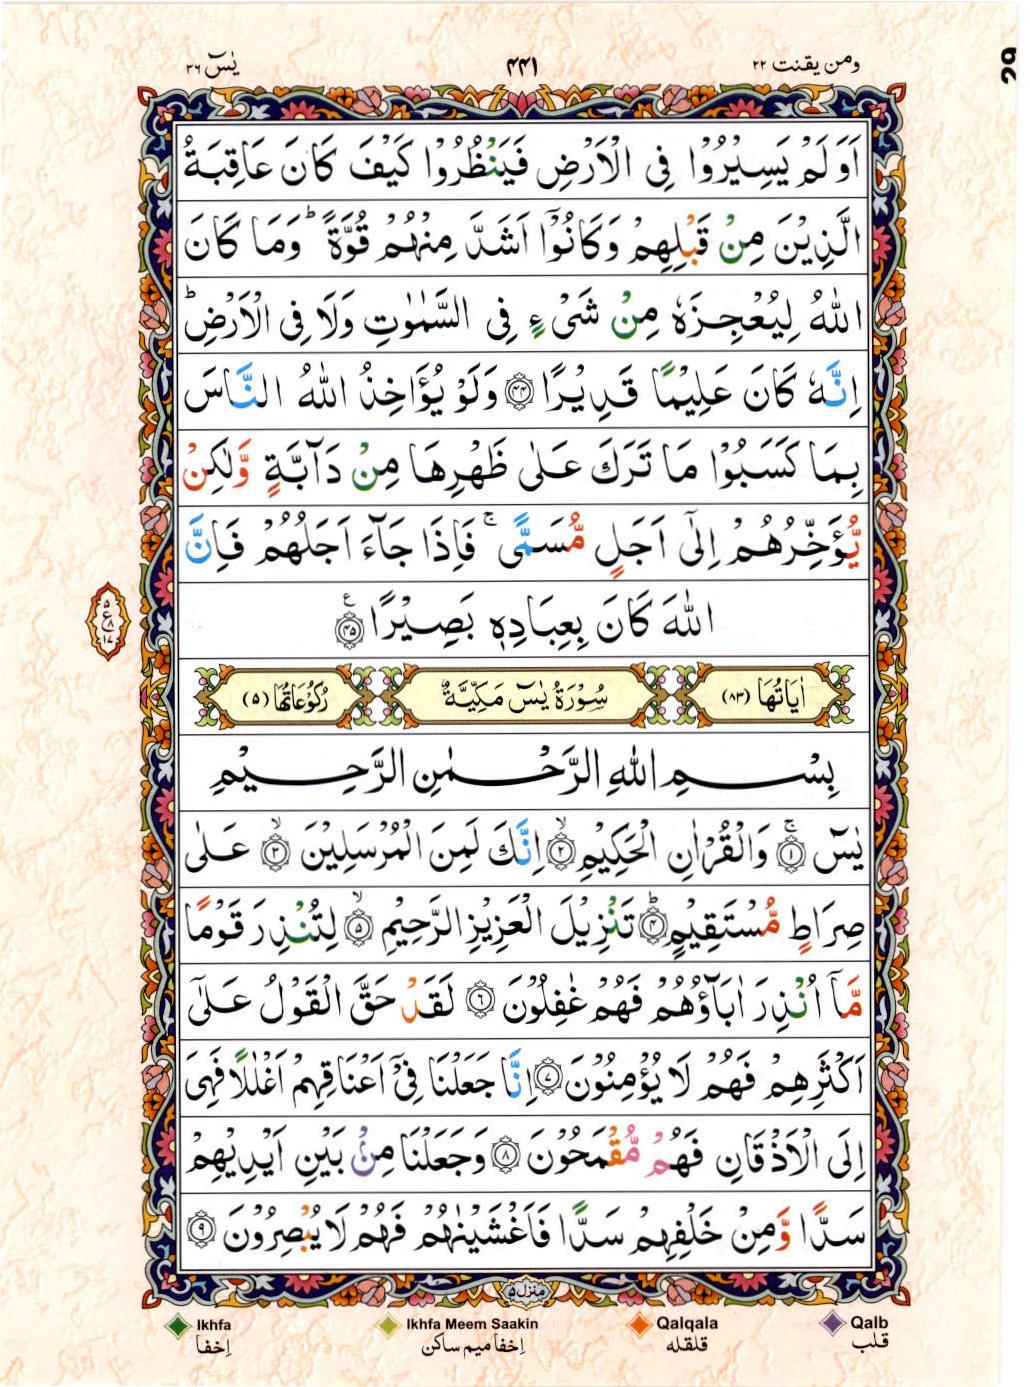 ومن یقنت ۲۲ ۴۴۱ یٰسٓ ۳۶
29
اَوَلَمْ يَسِيْرُوْا فِى الْاَرْضِ فَيَنْظُرُوْا كَيْفَ كَانَ عَاقِبَةُ
الَّذِيْنَ مِنْ قَبْلِهِمْ وَكَانُوْٓا اَشَدَّ مِنْهُمْ قُوَّةً ؕ وَمَا كَانَ
اللّٰهُ لِيُعْجِزَهٗ مِنْ شَىْءٍ فِى السَّمٰوٰتِ وَلَا فِى الْاَرْضِ ؕ
اِنَّهٗ كَانَ عَلِيْمًا قَدِيْرًا ﴿۴۴﴾ وَلَوْ يُؤَاخِذُ اللّٰهُ النَّاسَ
بِمَا كَسَبُوْا مَا تَرَكَ عَلٰى ظَهْرِهَا مِنْ دَآبَّةٍ وَّلٰكِنْ
يُّؤَخِّرُهُمْ اِلٰٓى اَجَلٍ مُّسَمًّى ۚ فَاِذَا جَآءَ اَجَلُهُمْ فَاِنَّ
اللّٰهَ كَانَ بِعِبَادِهٖ بَصِيْرًا ﴿۴۵﴾ ع
۵ ع ۸ ۱۷
اٰيَاتُهَا (۸۳) سُوْرَةُ يٰسٓ مَكِّيَّةٌ رُكُوْعَاتُهَا (۵)
بِسْمِ اللّٰهِ الرَّحْمٰنِ الرَّحِيْمِ
يٰسٓ ۚ﴿۱﴾ وَالْقُرْاٰنِ الْحَكِيْمِ ۙ﴿۲﴾ اِنَّكَ لَمِنَ الْمُرْسَلِيْنَ ۙ﴿۳﴾ عَلٰى
صِرَاطٍ مُّسْتَقِيْمٍ ؕ﴿۴﴾ تَنْزِيْلَ الْعَزِيْزِ الرَّحِيْمِ ۙ﴿۵﴾ لِتُنْذِرَ قَوْمًا
مَّآ اُنْذِرَ اٰبَآؤُهُمْ فَهُمْ غٰفِلُوْنَ ﴿۶﴾ لَقَدْ حَقَّ الْقَوْلُ عَلٰٓى
اَكْثَرِهِمْ فَهُمْ لَا يُؤْمِنُوْنَ ﴿۷﴾ اِنَّا جَعَلْنَا فِىْٓ اَعْنَاقِهِمْ اَغْلٰلًا فَهِىَ
اِلَى الْاَذْقَانِ فَهُمْ مُّقْمَحُوْنَ ﴿۸﴾ وَجَعَلْنَا مِنْۢ بَيْنِ اَيْدِيْهِمْ
سَدًّا وَّمِنْ خَلْفِهِمْ سَدًّا فَاَغْشَيْنٰهُمْ فَهُمْ لَا يُبْصِرُوْنَ ﴿۹﴾
منزل ۵
Ikhfa Ikhfa Meem Saakin Qalqala Qalb
اِخفا اِخفا میم ساکن قلقله قلب